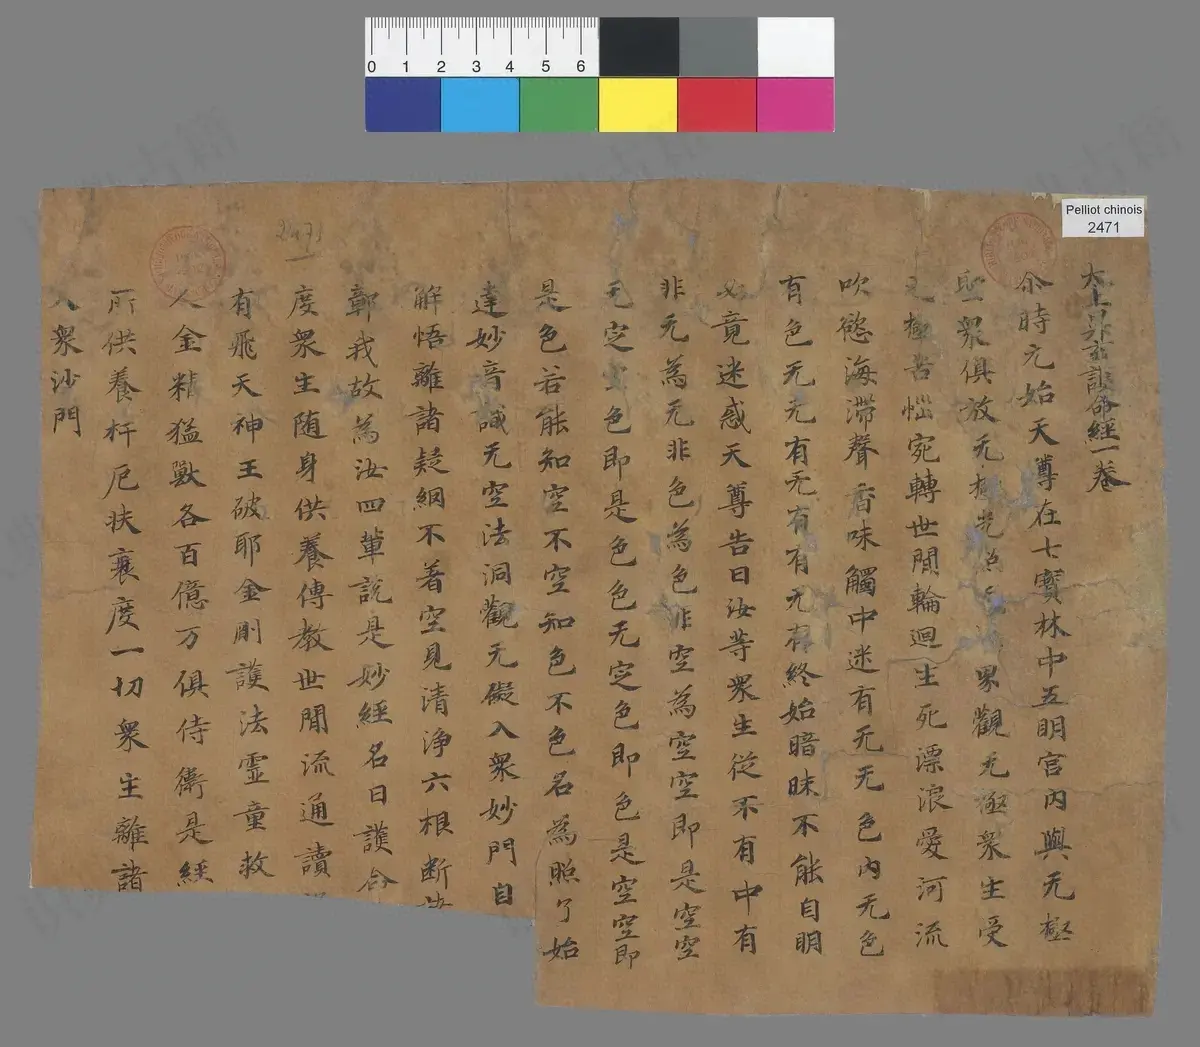 太上昇玄護命經一卷
尒時元始天尊在七寶林中五明宮内與无極
聖衆俱放无極光照无極世界觀无極衆生受
无極苦惱宛轉世間輪迴生死漂浪愛河流
吹慾海滯聲香味觸中迷有无无色内无色
有色无无有无有有无有終始暗昧不能自明
畢竟迷惑天尊告曰汝等衆生從不有中有
非无為无非色為色非空為空空即是空空
无定空色即是色色无定色即色是空空即
是色若能知空不空知色不色名為照了始
達妙音識无空法洞觀无礙入衆妙門自
解悟離諸疑網不着空見清淨六根断
鄣我故為汝四軰說是妙經名曰護命
度衆生随身供養傳教世間流通讀
有飛天神王破耶金剛護法靈童救
人金精猛獸各百億万俱侍衛是經
所供養杆厄扶衰度一切衆生離諸
衆沙門
2471
Pelliot chinois
2471
0 1 2 3 4 5 6